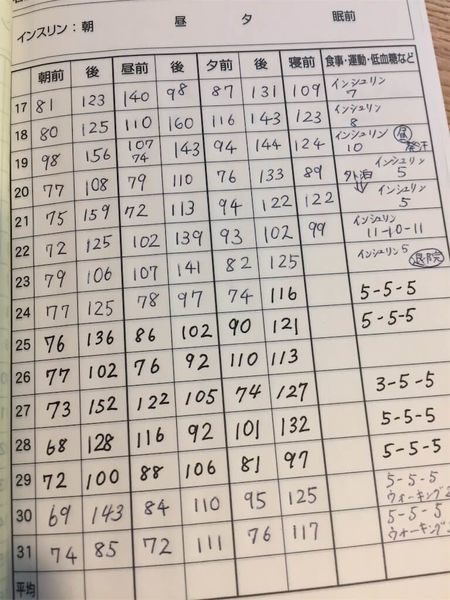 インスリン： 朝 昼 夕 眠前
朝前 後 昼前 後 夕前 後 寝前 食事・運動・低血糖など
17 81 123 140 98 87 131 109 インシュリン 7
18 80 125 110 160 116 143 123 インシュリン 8
19 98 156 107 74 143 94 144 124 インシュリン 10 昼
20 77 108 79 110 76 133 89 インシュリン 5
外泊↓
21 75 159 72 113 94 122 122 インシュリン 5
22 72 125 102 139 93 102 99 インシュリン 11-10-11
23 79 106 107 141 82 125 インシュリン 5 退院
24 77 125 78 97 74 116 5-5-5
25 76 136 86 102 90 121 5-5-5
26 77 102 76 92 110 113
27 73 152 122 105 74 127 3-5-5
28 68 128 116 92 101 132 5-5-5
29 72 100 88 106 81 97 5-5-5
30 69 143 84 110 95 125 5-5-5 ウォーキング
31 74 85 72 111 76 117 5-5-5 ウォーキング
平均